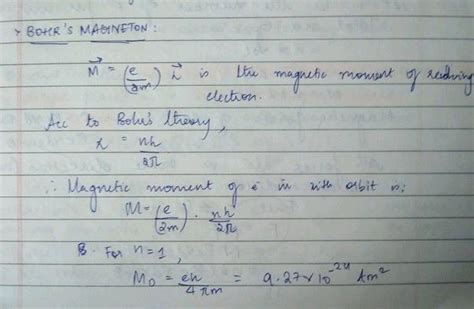 > BOHR'S MAGNETON:
M⃗ = (e/2m) L⃗ is the magnetic moment of revolving
electron.
Acc to Bohr's theory,
L = nh/2π
∴ Magnetic moment of e⁻ in nth orbit is:
M = (e/2m) · nh/2π
For n=1,
M₀ = eh/4πm = 9.27 × 10⁻²⁴ Am²